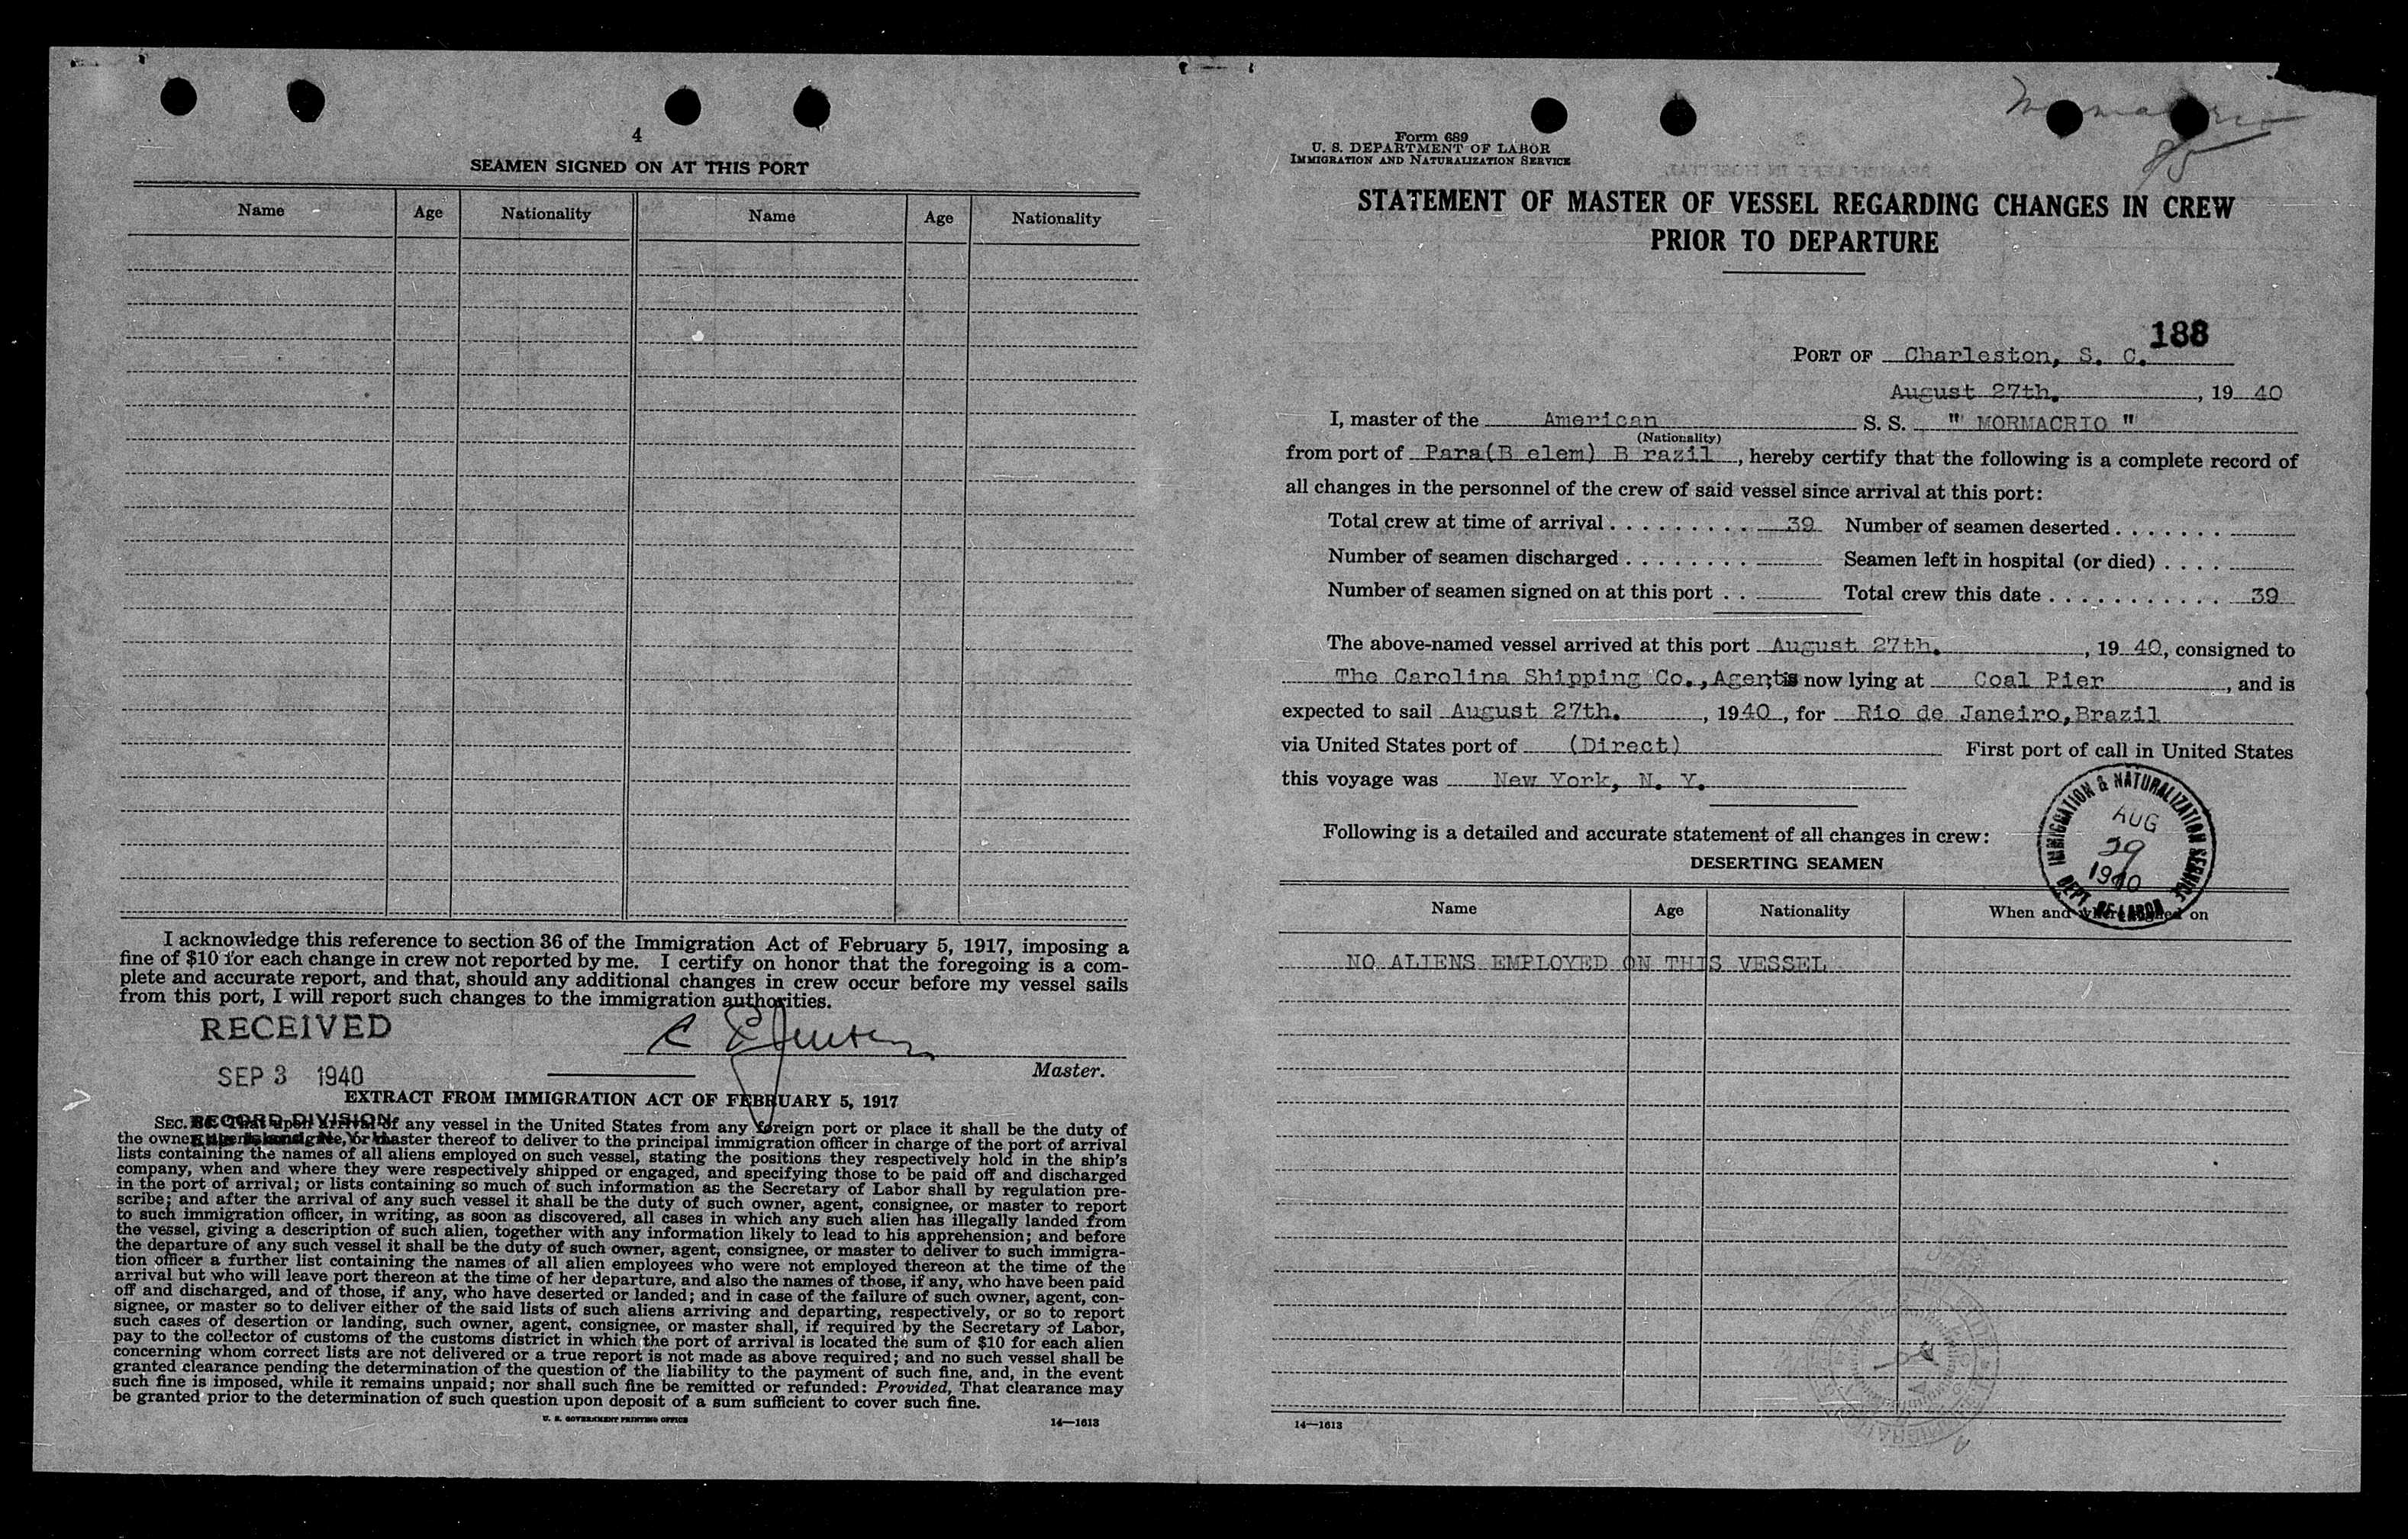 4
SEAMEN SIGNED ON AT THIS PORT
Name Age Nationality Name Age Nationality
I acknowledge this reference to section 36 of the Immigration Act of February 5, 1917, imposing a
fine of $10 for each change in crew not reported by me. I certify on honor that the foregoing is a com-
plete and accurate report, and that, should any additional changes in crew occur before my vessel sails
from this port, I will report such changes to the immigration authorities.
RECEIVED
Master.
SEP 3 1940
EXTRACT FROM IMMIGRATION ACT OF FEBRUARY 5, 1917
RECORD DIVISION
SEC. 36. That upon arrival of any vessel in the United States from any foreign port or place it shall be the duty of
the owner, agent, consignee, or master thereof to deliver to the principal immigration officer in charge of the port of arrival
lists containing the names of all aliens employed on such vessel, stating the positions they respectively hold in the ship's
company, when and where they were respectively shipped or engaged, and specifying those to be paid off and discharged
in the port of arrival; or lists containing so much of such information as the Secretary of Labor shall by regulation pre-
scribe; and after the arrival of any such vessel it shall be the duty of such owner, agent, consignee, or master to report
to such immigration officer, in writing, as soon as discovered, all cases in which any such alien has illegally landed from
the vessel, giving a description of such alien, together with any information likely to lead to his apprehension; and before
the departure of any such vessel it shall be the duty of such owner, agent, consignee, or master to deliver to such immigra-
tion officer a further list containing the names of all alien employees who were not employed thereon at the time of the
arrival but who will leave port thereon at the time of her departure, and also the names of those, if any, who have been paid
off and discharged, and of those, if any, who have deserted or landed; and in case of the failure of such owner, agent, con-
signee, or master so to deliver either of the said lists of such aliens arriving and departing, respectively, or so to report
such cases of desertion or landing, such owner, agent, consignee, or master shall, if required by the Secretary of Labor,
pay to the collector of customs of the customs district in which the port of arrival is located the sum of $10 for each alien
concerning whom correct lists are not delivered or a true report is not made as above required; and no such vessel shall be
granted clearance pending the determination of the question of the liability to the payment of such fine, and, in the event
such fine is imposed, while it remains unpaid; nor shall such fine be remitted or refunded: Provided, That clearance may
be granted prior to the determination of such question upon deposit of a sum sufficient to cover such fine.
U. S. GOVERNMENT PRINTING OFFICE 14—1613
Mormacrio
95
Form 689
U. S. DEPARTMENT OF LABOR
IMMIGRATION AND NATURALIZATION SERVICE
STATEMENT OF MASTER OF VESSEL REGARDING CHANGES IN CREW
PRIOR TO DEPARTURE
188
PORT OF Charleston, S. C.
August 27th. , 19 40
I, master of the American S. S. " MORMACRIO "
(Nationality)
from port of Para(B elem) B razil , hereby certify that the following is a complete record of
all changes in the personnel of the crew of said vessel since arrival at this port:
Total crew at time of arrival . . . . . . . . . 39 Number of seamen deserted . . . . . . .
Number of seamen discharged . . . . . . . . Seamen left in hospital (or died) . . . .
Number of seamen signed on at this port . . Total crew this date . . . . . . . . . . . 39
The above-named vessel arrived at this port August 27th. , 19 40, consigned to
The Carolina Shipping Co., Agents, is now lying at Coal Pier , and is
expected to sail August 27th. , 1940 , for Rio de Janeiro, Brazil
via United States port of (Direct) First port of call in United States
this voyage was New York, N. Y.
IMMIGRATION & NATURALIZATION SERVICE
AUG
29
1940
DEPT. OF LABOR
Following is a detailed and accurate statement of all changes in crew:
DESERTING SEAMEN
Name Age Nationality When and where signed on
NO ALIENS EMPLOYED ON THIS VESSEL
14—1613